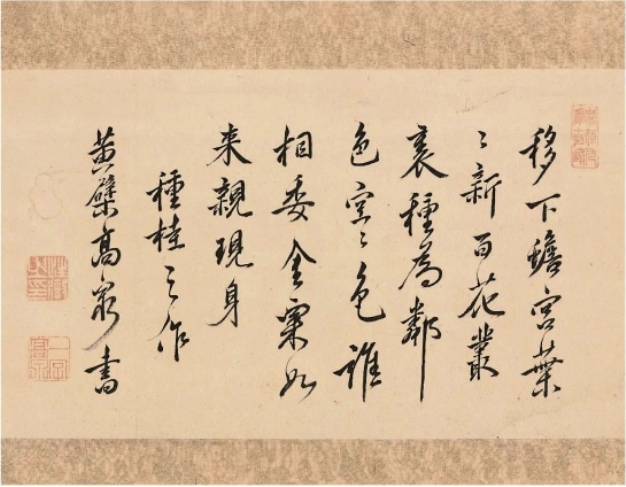 移下蟾宮葉
〻新百花叢
裏種為鄰
色空〻色誰
相委金粟如
来親現身
種桂之作
黄檗高泉書